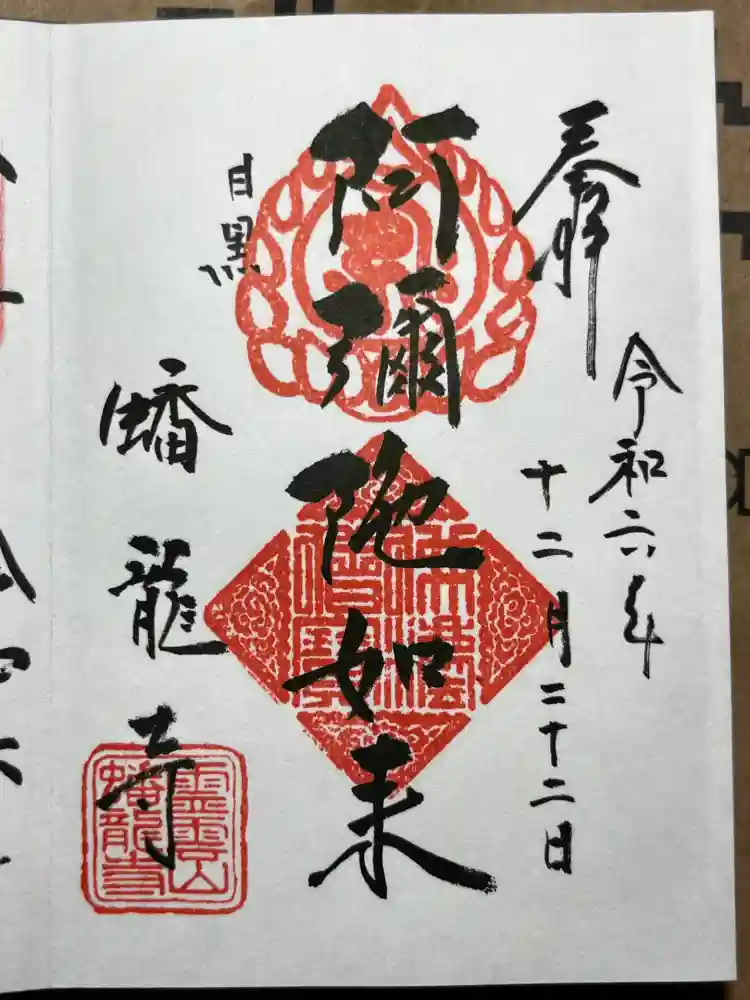 奉拝
令和六年
十二月二十二日
阿彌陀如来
目黒
蟠龍寺
佛法
僧寳
霊雲山
蟠龍寺